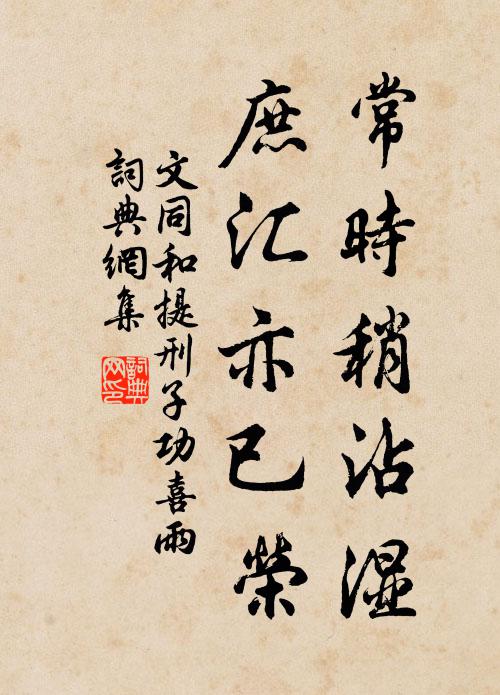 常時稍沾湿
庶汇亦已榮
文同和提刑子功喜雨
詞典網集
詞典網印